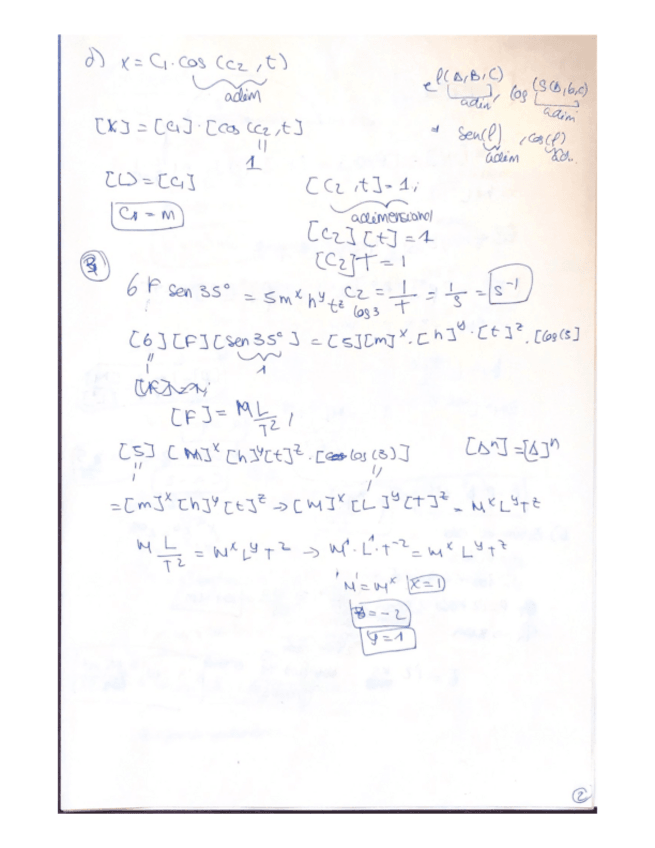 d) x = C₁·cos (C₂, t)
adim
e^f(A,B,C) , log (S(A,b,c)
adim adim
sen(f) , cos(f)
adim adi.
[X] = [C₁]·[cos (C₂, t]
"
1
[L] = [C₁]
[C₂, t] = 1;
C₁ = M
adimensional
[C₂] [t] = 1
[C₂] T = 1
6 F sen 35° = 5m^x h^y t^z log 3
C₂ = 1/T = 1/s = s⁻¹
[6] [F] [sen 35°] = [5] [m]^x · [h]^y · [t]^z · [log(3]
"
1
1
[F] = M L/T² ,
[5] [M]^x [h]^y [t]^z · [log (3)]
[Aⁿ] = [A]ⁿ
"
1
"
1
= [m]^x [h]^y [t]^z → [M]^x [L]^y [T]^z = M^x L^y T^z
M L/T² = M^x L^y T^z → M¹·L¹·T⁻² = M^x L^y T^z
M¹ = M^x x=1
z = -2
y = 1
2